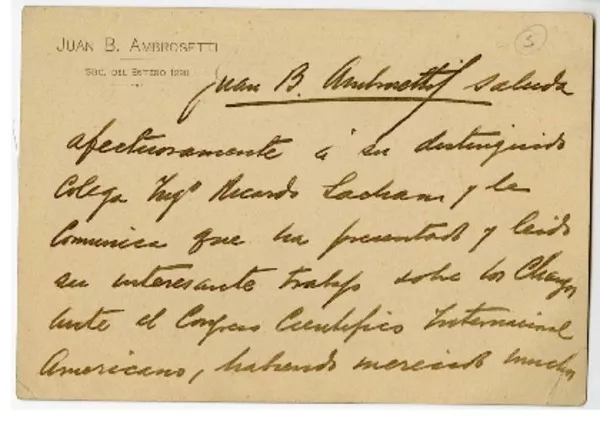 JUAN B. AMBROSETTI
SGO. DEL ESTERO 1221
5
Juan B. Ambrosetti saluda
afectuosamente á su distinguido
Colega Ingº Ricardo Latcham y le
Comunica que ha presentado y leido
su interesante trabajo sobre los Changos
ante el Congreso Cientifico Internacional
Americano, habiendo merecido muchos